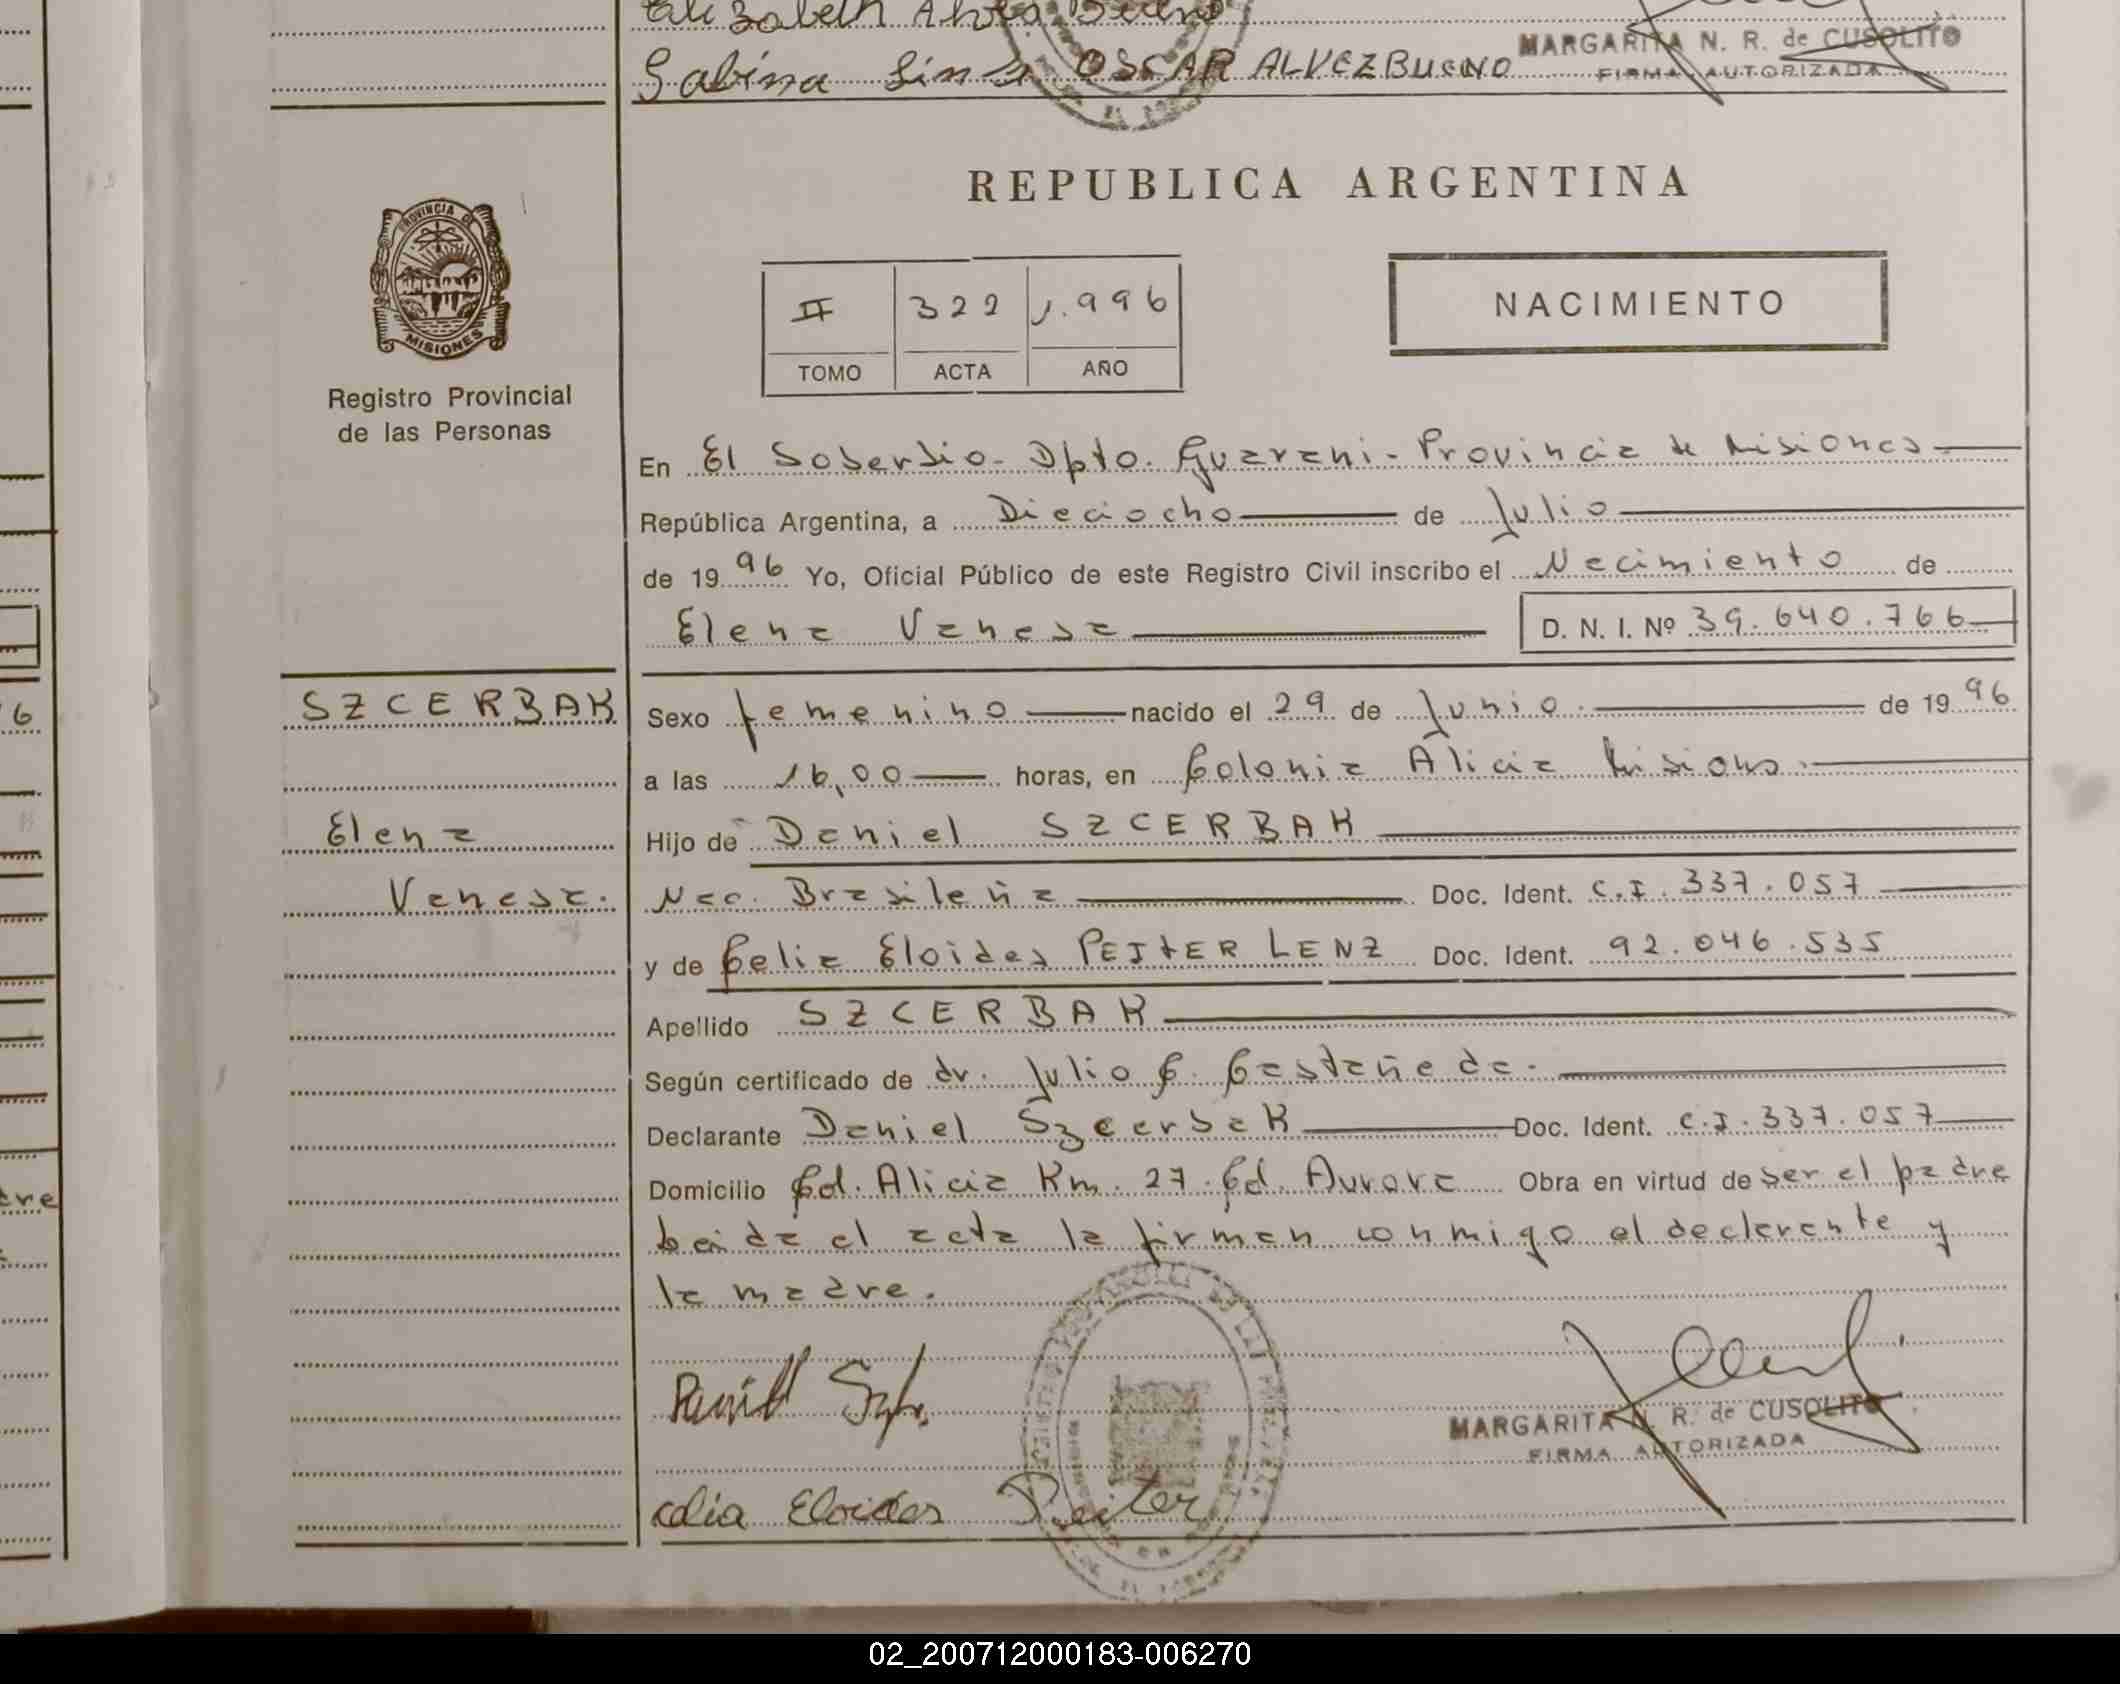 Elizabeth Alves Bueno
Sabina Lins OSCAR ALVEZ BUENO
MARGARITA N. R. de CUSOLITO
FIRMA AUTORIZADA
REPUBLICA ARGENTINA
PROVINCIA DE
MISIONES
Registro Provincial
de las Personas
II 322 1.996
TOMO ACTA AÑO
NACIMIENTO
En El Soberbio - Dpto. Guarani - Provincia de Misiones
República Argentina, a Dieciocho de Julio
de 1996 Yo, Oficial Público de este Registro Civil inscribo el Nacimiento de
Elena Vanesa D. N. I. Nº 39.640.766
SZCERBAK
Elena
Vanesa.
Sexo femenino nacido el 29 de Junio de 1996
a las 16,00 horas, en Colonia Alicia Misiones.
Hijo de Daniel SZCERBAK
Nac. Brasileña Doc. Ident. C.I. 337.057
y de Celia Eloides PEITER LENZ Doc. Ident. 92.046.535
Apellido SZCERBAK
Según certificado de dr. Julio C. Castañeda.
Declarante Daniel Szcerbak Doc. Ident. C.I. 337.057
Domicilio Col. Alicia Km. 27. Cd. Aurora Obra en virtud de ser el padre
Leida el acta la firman conmigo el declarante y
la madre.
MARGARITA N. R. de CUSOLITO
FIRMA AUTORIZADA
Celia Eloides Peiter
6
dre
02_200712000183-006270